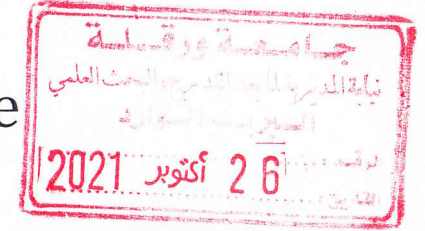 جامعة ورقلة
نيابة المديرية لما بعد التدرج والبحث العلمي
البريد الوارد
e
رقم
26 أكتوبر 2021
التاريخ